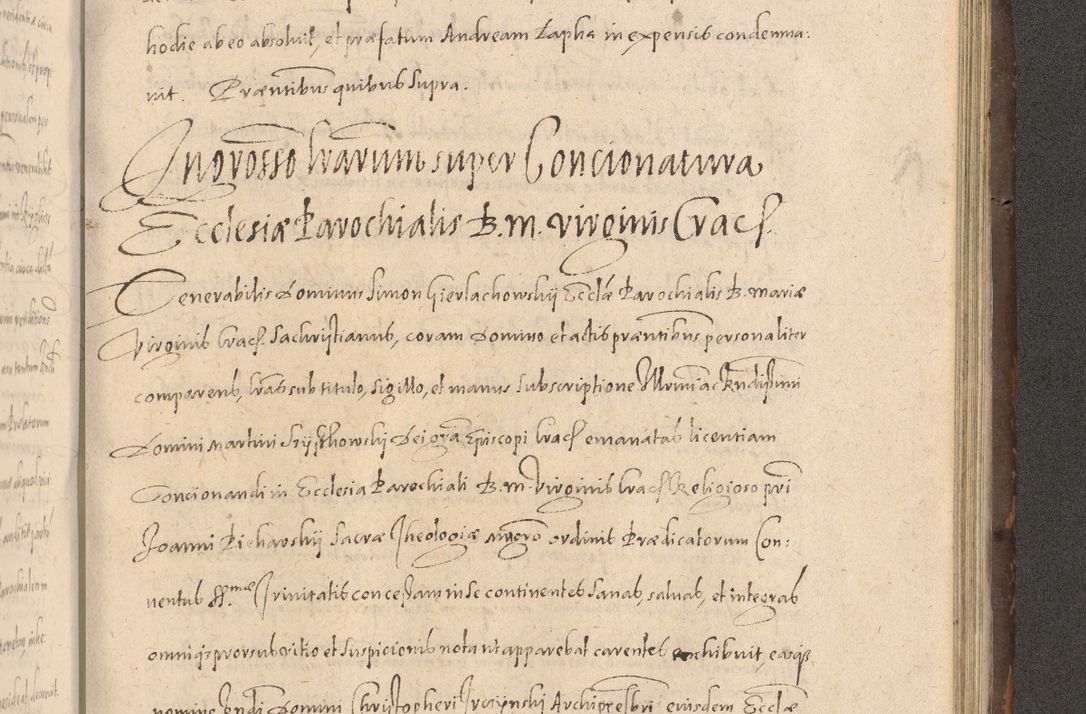 hodie ab eo absoluit, et præfatum Andream Lapka in expensis condemna:
uit. Præntibus quibus supra.
Ingrosso lrarum super Concionatura
Ecclesiæ Parochialis B. M. Virginis Crac.
Venerabilis Dominus Simon Gierlachowskij Ecclæ Parochialis B. Mariæ
Virginis Crac. Sachristianus, coram Domino et actis præntibus personaliter
comparens, lras sub titulo, sigillo, et manus subscriptione Illrmi ac Rndissimi
Domini Martini Szyszkowskij Dei gra Episcopi Crac. emanatas licentiam
Concionandi in Ecclesia Parochiali B. M. Virginis Crac. Religioso pri
Joanni Piekarskij Sacræ Theologiæ mgro ordinis Prædicatorum Con:
ventus SS.mæ Trinitatis concessam in se continentes sanas, saluas, et integras
omniqs prorsus vitio et suspicionis nota ut apparebat carentes exhibuit, easqs
nomine Rndi Domini Christopheri Trczinskij Archipresbri eiusdem Ecclæ